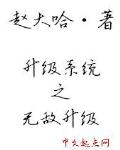 赵大哈·著
升级系统
之
无敌升级
中文起点网